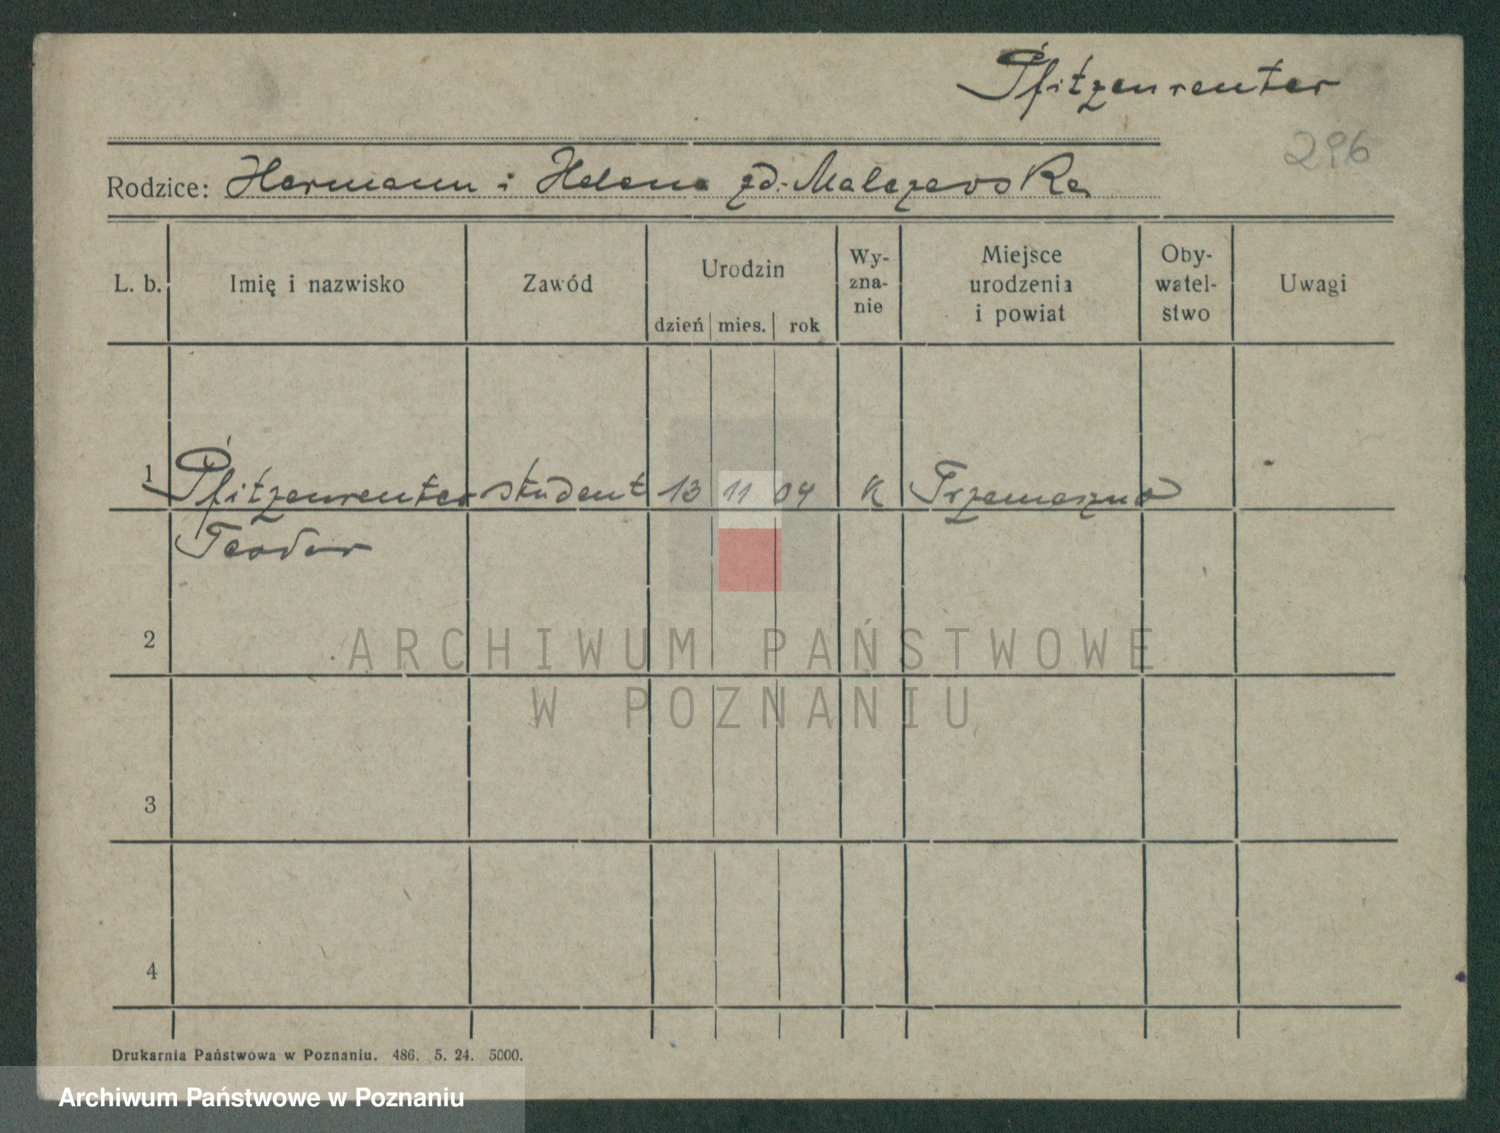 Pfitzenreuter
296
Rodzice: Hermann i Helena zd. Malczewska
L. b. Imię i nazwisko Zawód Urodzin dzień mies. rok Wy-zna-nie Miejsce urodzenia i powiat Oby-watel-stwo Uwagi
1 Pfitzenreuter student 13 11 04 K Trzemeszno
Teodor
2
ARCHIWUM PAŃSTWOWE
W POZNANIU
3
4
Drukarnia Państwowa w Poznaniu. 486. 5. 24. 5000.
Archiwum Państwowe w Poznaniu